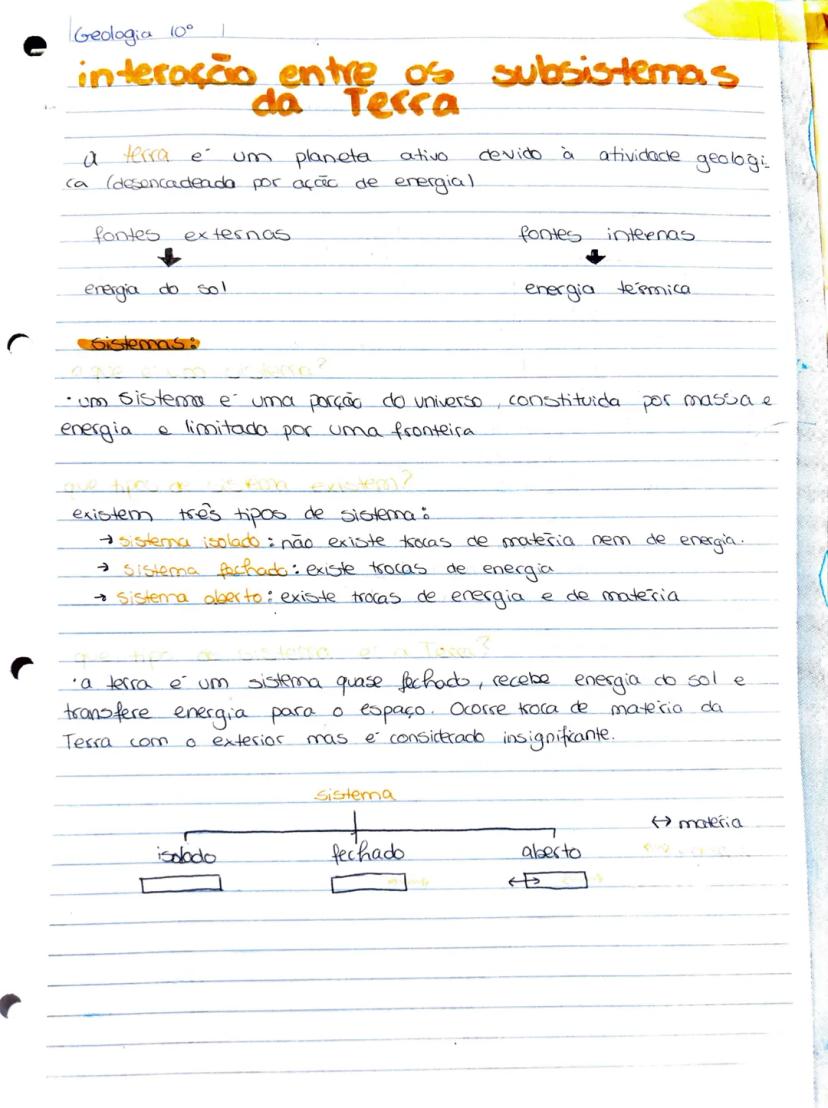 Geologia 10º
interação entre os subsistemas
da Terra
a terra é um planeta ativo devido à atividade geológi-
ca (desencadeada por ação de energia)
fontes externas fontes internas
energia do sol energia térmica
sistemas:
o que é um sistema?
· um sistema é uma porção do universo, constituida por massa e
energia e limitada por uma fronteira
que tipos de sistema existem?
existem três tipos de sistema:
→ sistema isolado: não existe trocas de matéria nem de energia.
→ sistema fechado: existe trocas de energia
→ sistema aberto: existe trocas de energia e de matéria
que tipo de sistema é a Terra?
· a terra é um sistema quase fechado, recebe energia do sol e
transfere energia para o espaço. Ocorre troca de matéria da
Terra com o exterior mas é considerado insignificante.
sistema
↔ matéria
isolado fechado aberto